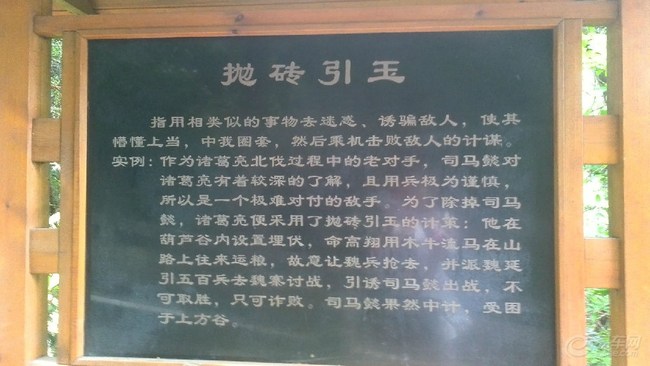 抛砖引玉
指用相类似的事物去迷惑、诱骗敌人，使其
懵懂上当，中我圈套，然后乘机击败敌人的计谋。
实例：作为诸葛亮北伐过程中的老对手，司马懿对
诸葛亮有着较深的了解，且用兵极为谨慎，
所以是一个极难对付的敌手。为了除掉司马
懿，诸葛亮便采用了抛砖引玉的计策：他在
葫芦谷内设置埋伏，命高翔用木牛流马在山
路上往来运粮，故意让魏兵抢去，并派魏延
引五百兵去魏寨讨战，引诱司马懿出战，不
可取胜，只可诈败。司马懿果然中计，受困
于上方谷。